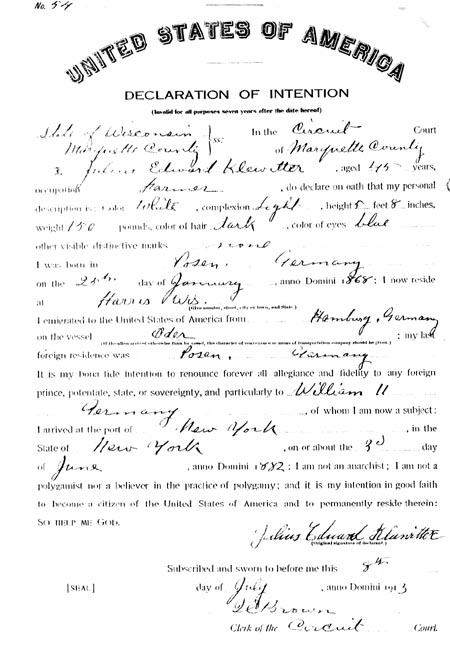 No. 54
UNITED STATES OF AMERICA
DECLARATION OF INTENTION
(Invalid for all purposes seven years after the date hereof)
State of Wisconsin
Marquette County } ss: In the Circuit Court of Marquette County
I, Julius Edward Klewitter, aged 45 years,
occupation Farmer, do declare on oath that my personal
description is: Color White, complexion Light, height 5 feet 8 inches,
weight 150 pounds, color of hair dark, color of eyes blue
other visible distinctive marks none
I was born in Posen, Germany
on the 28th day of January, anno Domini 1868; I now reside
at Harris Wis.
(Give number, street, city or town, and State.)
I emigrated to the United States of America from Hamburg, Germany
on the vessel Oder; my last
(If the alien arrived otherwise than by vessel, the character of conveyance or name of transportation company should be given.)
foreign residence was Posen, Germany
It is my bona fide intention to renounce forever all allegiance and fidelity to any foreign
prince, potentate, state, or sovereignty, and particularly to William II
Germany, of whom I am now a subject;
I arrived at the port of New York, in the
State of New York, on or about the 3d day
of June, anno Domini 1882; I am not an anarchist; I am not a
polygamist nor a believer in the practice of polygamy; and it is my intention in good faith
to become a citizen of the United States of America and to permanently reside therein:
SO HELP ME GOD.
Julius Edward Klawitter
(Original signature of declarant.)
Subscribed and sworn to before me this 8th
[SEAL] day of July, anno Domini 1913
Brown
Clerk of the Circuit Court.